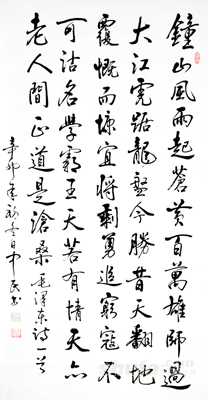 鐘山風雨起蒼黃百萬雄師過
大江虎踞龍盤今勝昔天翻地
覆慨而慷宜將剩勇追窮寇不
可沽名學霸王天若有情天亦
老人間正道是滄桑毛澤東詩一首
辛卯年 日中民书